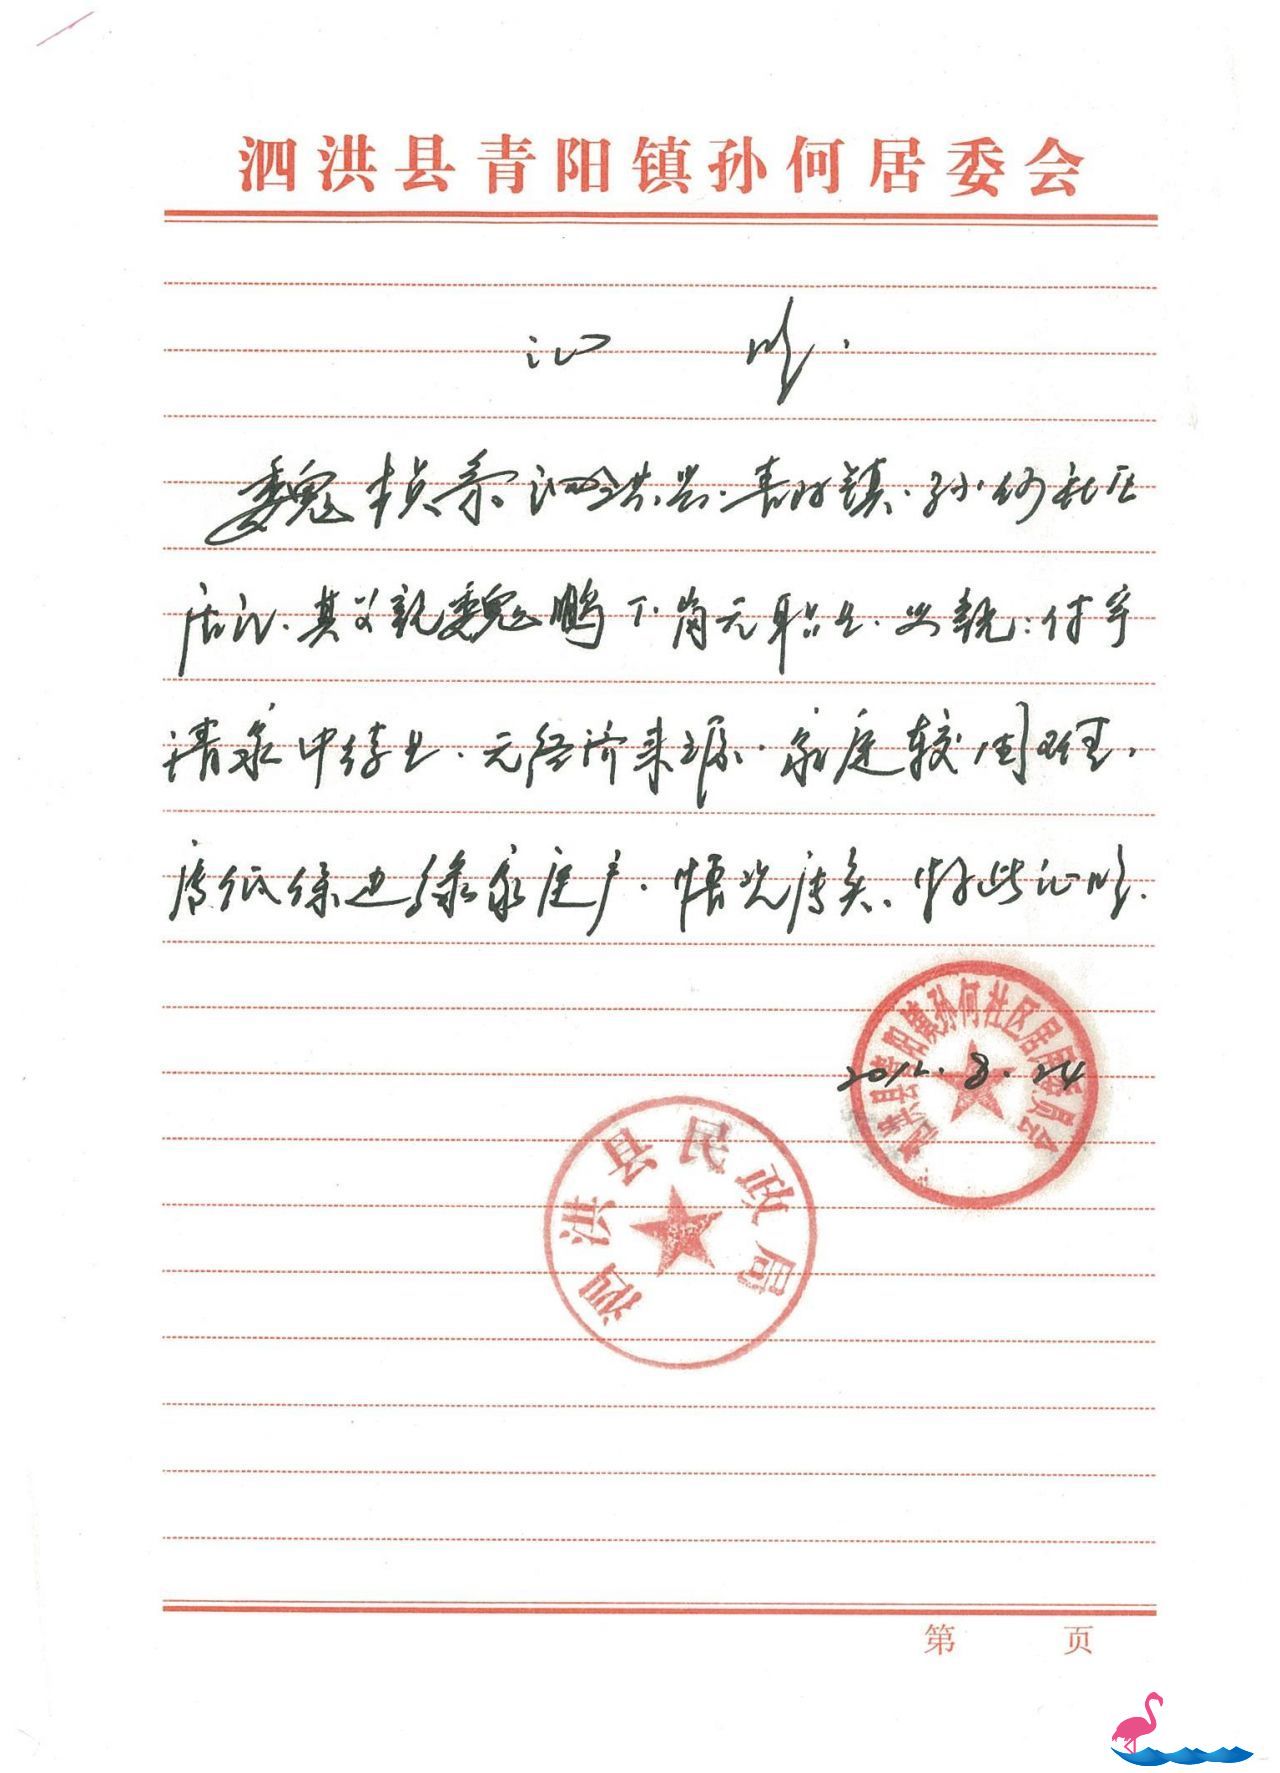 泗洪县青阳镇孙何居委会
证 明.
魏桢系泗洪县.青阳镇.孙何社区
居民.其父亲魏鹏下岗无职业.母亲:付宇
清家中待业.无经济来源.家庭较困难.
属低保边缘家庭户.情况属实.特此证明.
2012.8.24
泗洪县青阳镇孙何社区居民委员会
泗洪县民政局
第 页